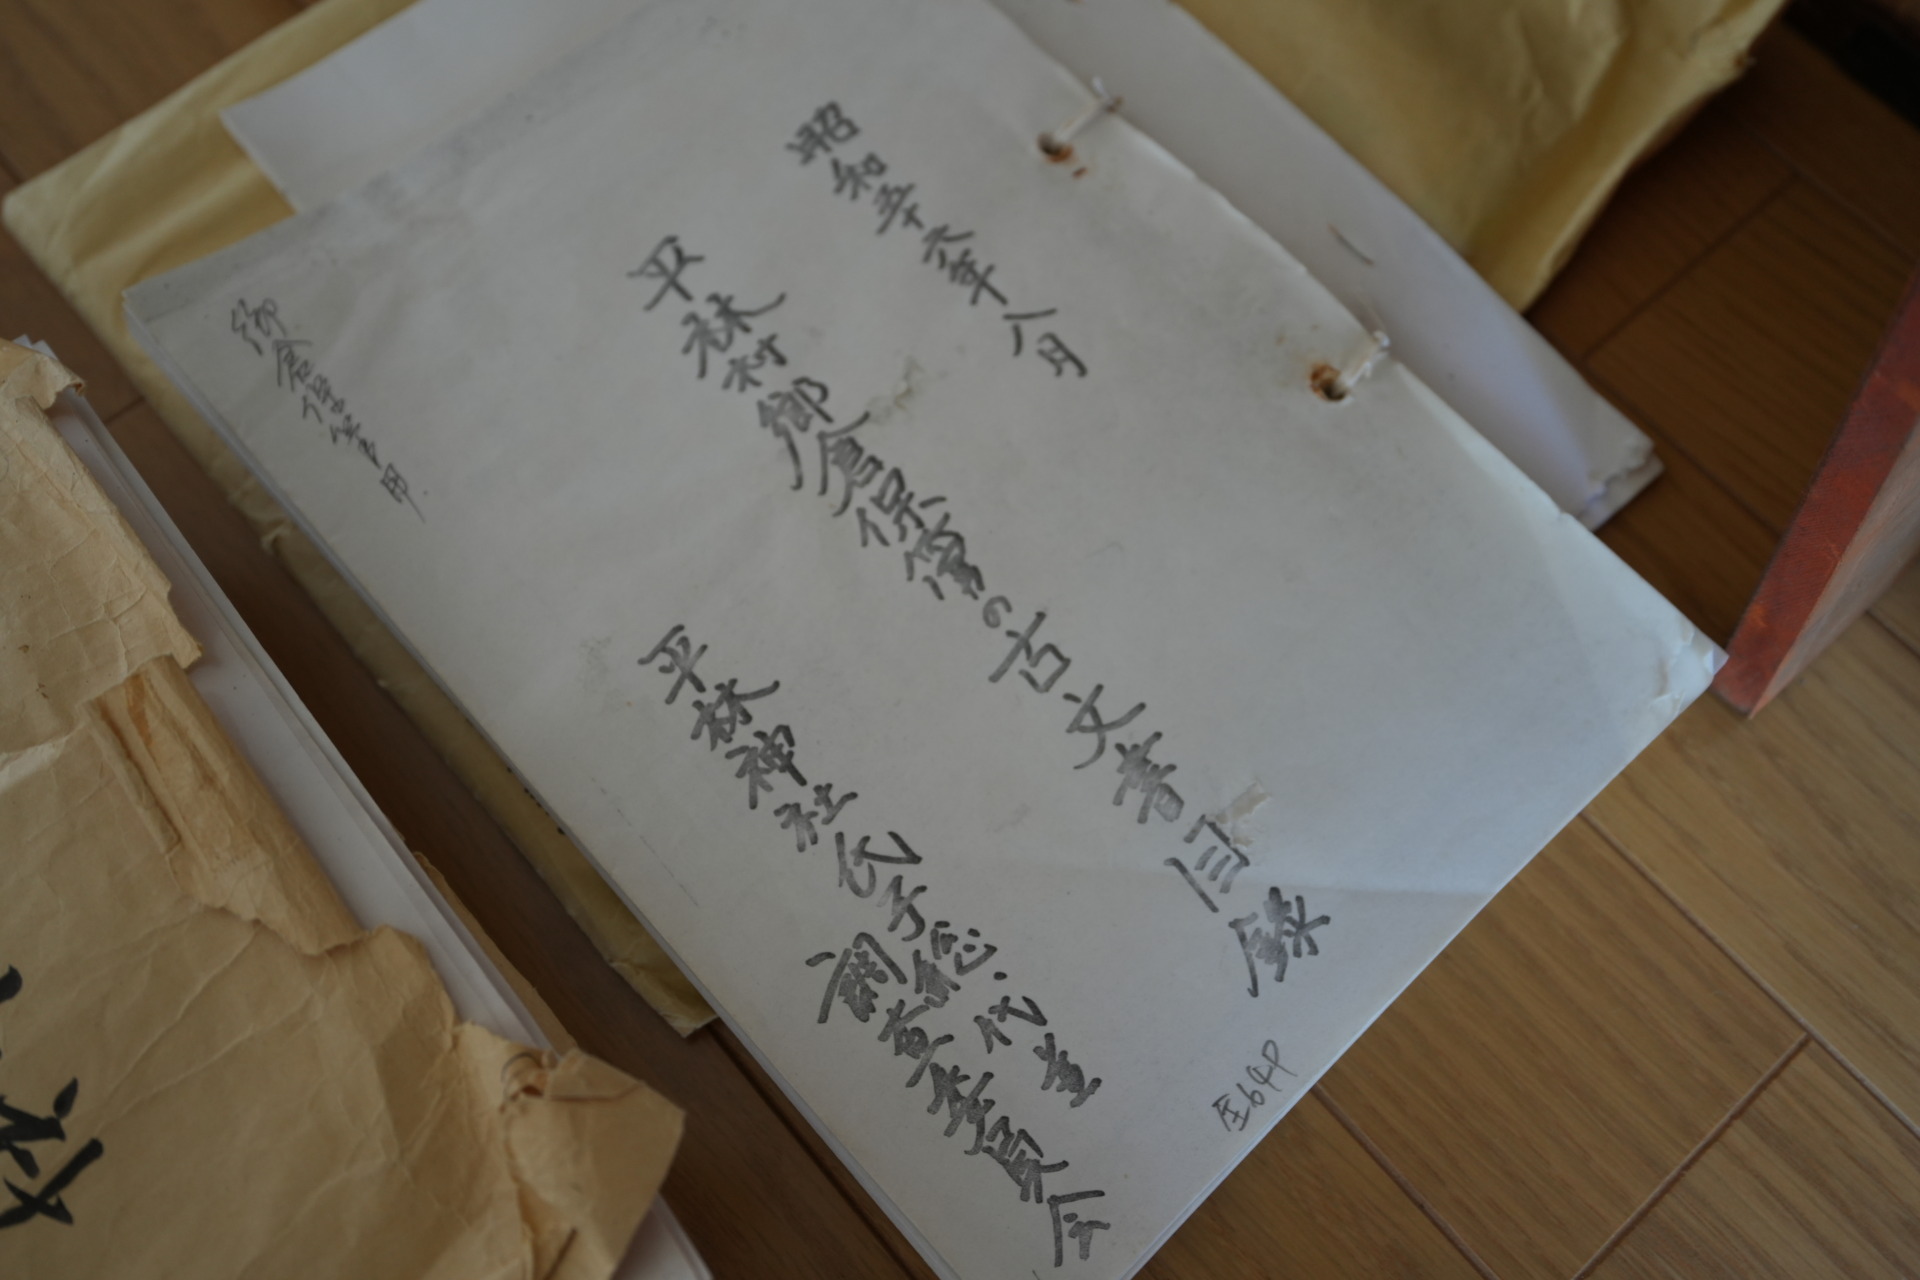 昭和五十六年八月
平林村郷倉保簿の古文書目録
平林神社氏子総代並
調査委員会
郷倉保管用
全64P